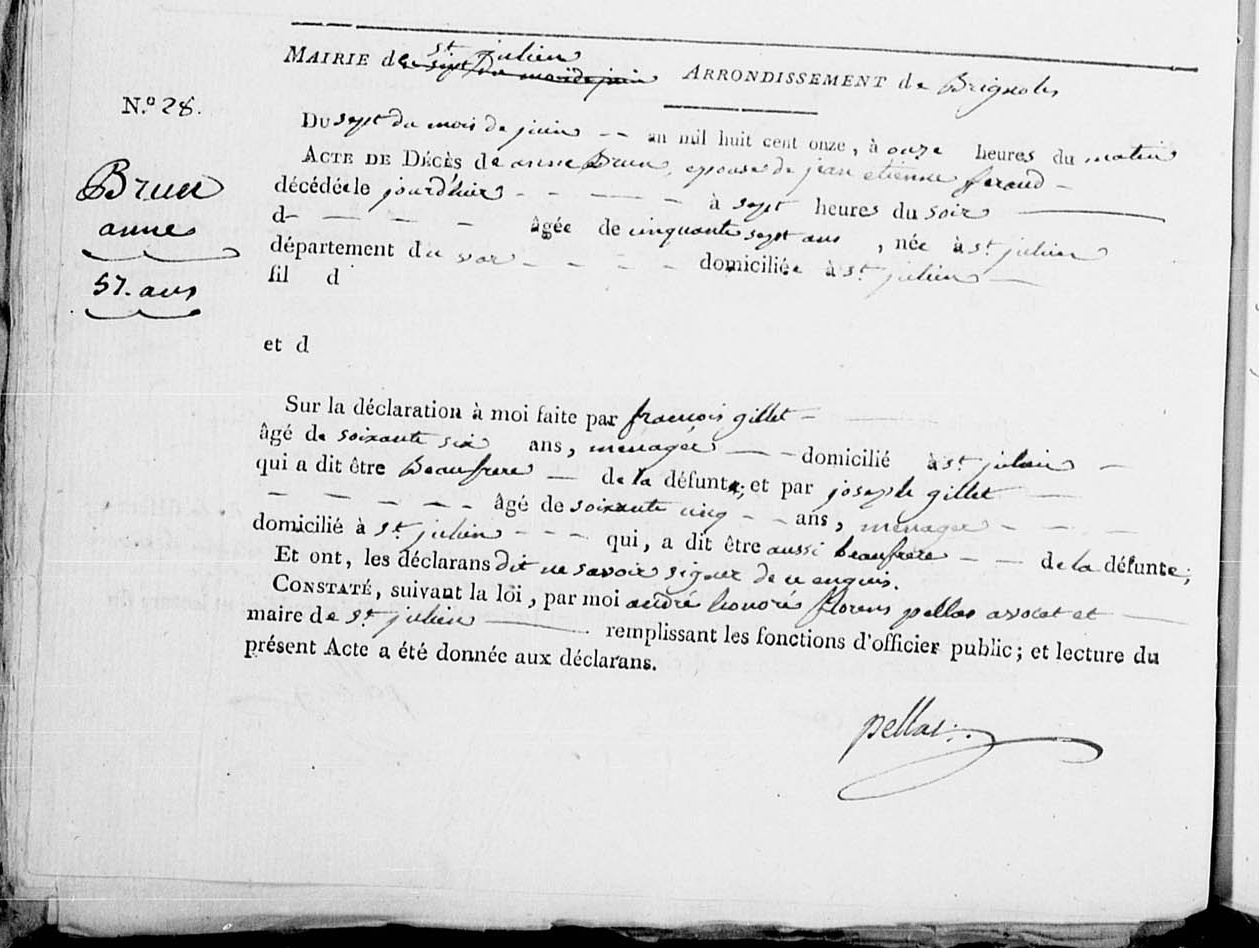 MAIRIE de st julien ARRONDISSEMENT de Brignoles
sept du mois de juin
N.º 28.
Brun
anne
57. ans
DU sept du mois de juin -- an mil huit cent onze, à onze heures du matin
ACTE DE DÉCÈS de anne Brun, epouse de jean etienne feraud -
décédée le jourd'hier - - - - - à sept heures du soir
d- - - - âgée de cinquante sept ans, née à st julien
département du var - - - - domiciliée à st julien -
fil d
et d
Sur la déclaration à moi faite par francois gillet -
âgé de soixante six ans, menager - - domicilié à st julien -
qui a dit être Beaufrere - de la défunte, et par joseph gillet -
- - - - - âgé de soixante cinq - - ans, menager - - -
domicilié à st julien - - - qui, a dit être aussi beaufrere - - de la défunte;
Et ont, les déclarans dit ne savoir signer de ce enquis.
CONSTATÉ, suivant la loi, par moi andré honoré florens pellas avocat et -
maire de st julien - remplissant les fonctions d'officier public; et lecture du
présent Acte a été donnée aux déclarans.
pellas